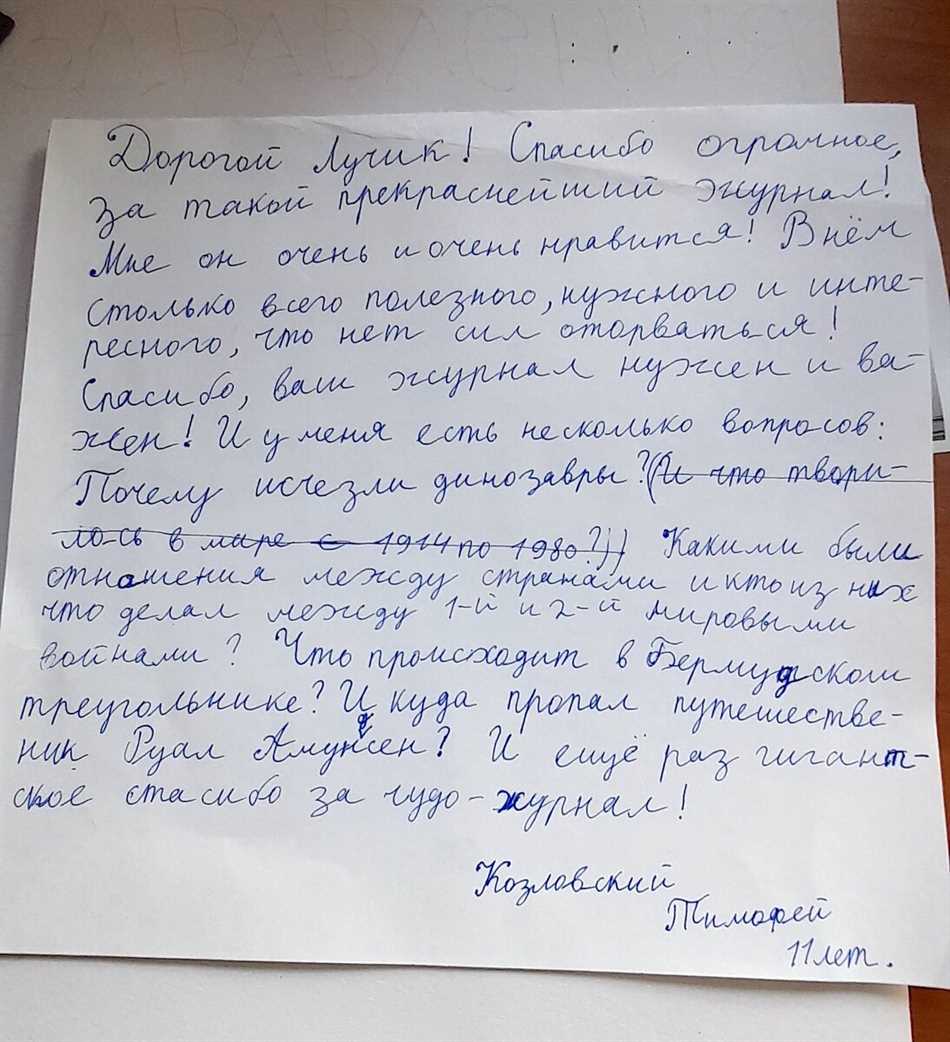 ЗДРАВЛЕНИЯ
Дорогой Лучик! Спасибо огромное,
за такой прекраснейший журнал!
Мне он очень и очень нравится! В нём
столько всего полезного, нужного и инте-
ресного, что нет сил оторваться!
Спасибо, ваш журнал нужен и ва-
жен! И у меня есть несколько вопросов:
Почему исчезли динозавры? (И что твори-
лось в мире с 1914 по 1980?)) Какими были
отношения между странами и кто из них
что делал между 1-й и 2-й мировыми
войнами? Что происходит в Бермудском
треугольнике? И куда пропал путешестве-
ник Руал Амундсен? И ещё раз гигант-
ское спасибо за чудо-журнал!
Козловский
Тимофей
11 лет.